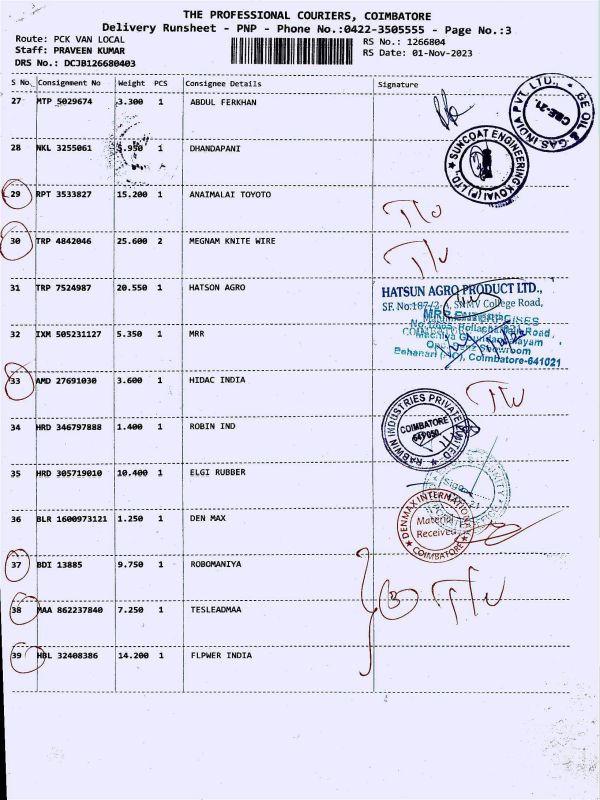 THE PROFESSIONAL COURIERS, COIMBATORE
Delivery Runsheet - PNP - Phone No.:0422-3505555 - Page No.:3
Route: PCK VAN LOCAL
RS No.: 1266804
Staff: PRAVEEN KUMAR
RS Date: 01-Nov-2023
DRS No.: DCJB126680403
S No. Consignment No Weight PCS Consignee Details Signature
27 MTP 5029674 3.300 1 ABDUL FERKHAN
GE OIL & GAS INDIA PVT. LTD.,
CBE-21.
28 NKL 3255061 3.950 1 DHANDAPANI
SUNCOAT ENGINEERING KOVAI (P) LTD.,
29 RPT 3533827 15.200 1 ANAIMALAI TOYOTO
30 TRP 4842046 25.600 2 MEGNAM KNITE WIRE
31 TRP 7524987 20.550 1 HATSON AGRO
HATSUN AGRO PRODUCT LTD.,
SF. No:187/2-A, SNMV College Road,
32 IXM 505231127 5.350 1 MRR
Coimbatore-641021
33 AMD 27691030 3.600 1 HIDAC INDIA
34 HRD 346797888 1.400 1 ROBIN IND
RABWIN INDUSTRIES PRIVATE LIMITED
COIMBATORE
641050.
35 HRD 305719010 10.400 1 ELGI RUBBER
36 BLR 1600973121 1.250 1 DEN MAX
DENMAX INTERNATIONAL
Material
Received
COIMBATORE
37 BDI 13885 9.750 1 ROBOMANIYA
38 MAA 862237840 7.250 1 TESLEADMAA
39 HBL 32408386 14.200 1 FLPWER INDIA